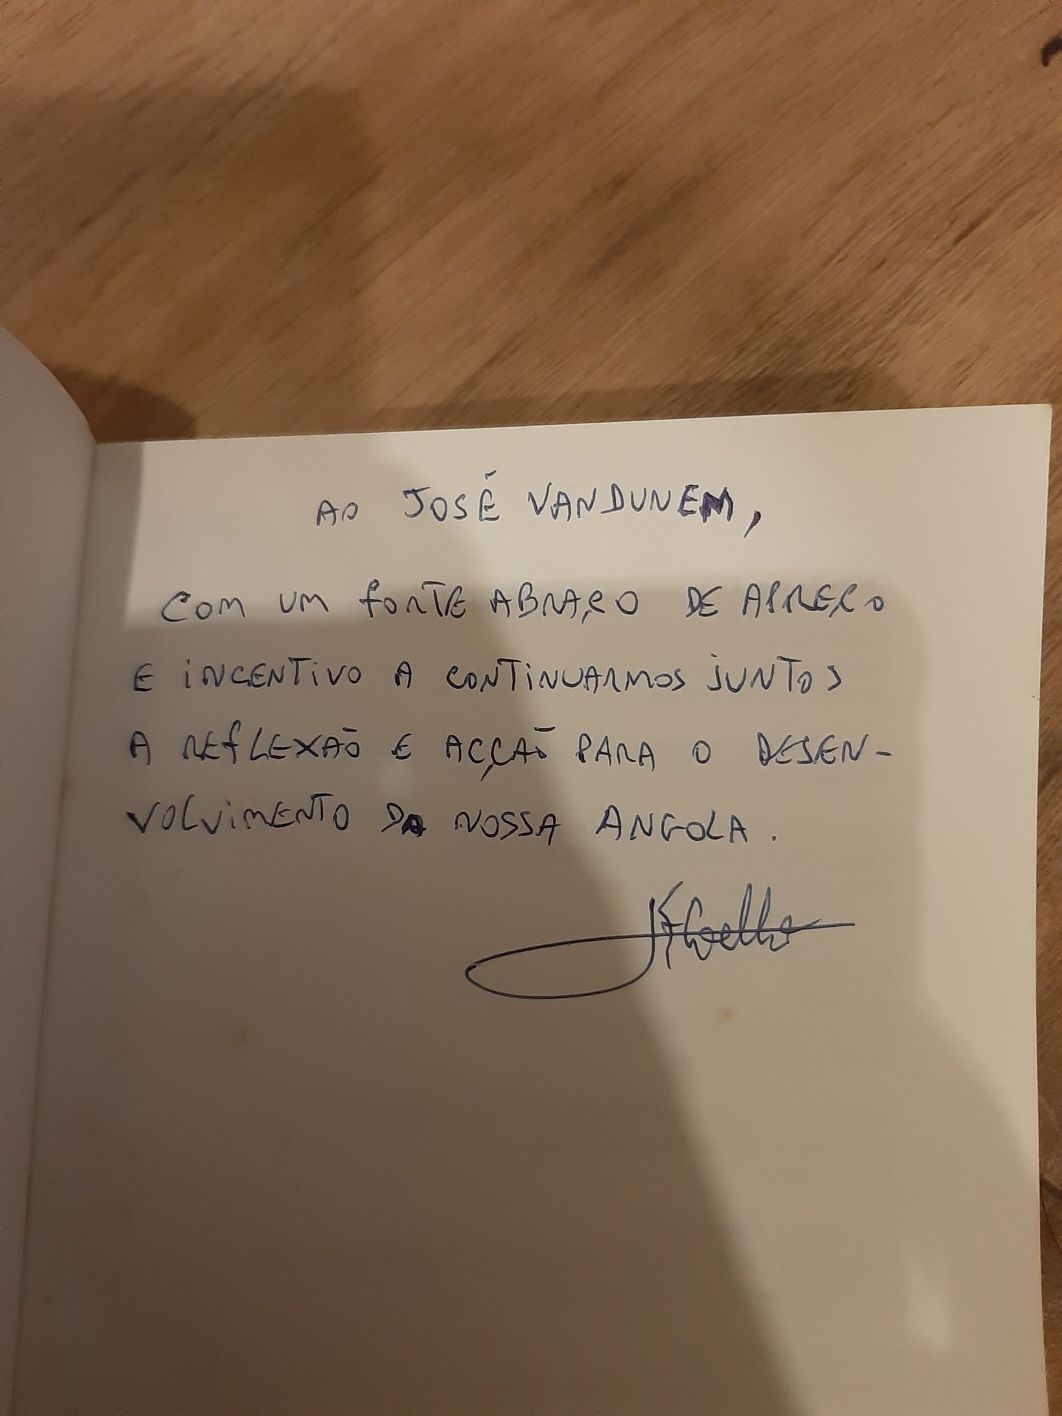 AO JOSÉ VANDUNEM,
COM UM FORTE ABRAÇO DE APREÇO
E INCENTIVO A CONTINUARMOS JUNTOS
A REFLEXÃO E ACÇÃO PARA O DESEN-
VOLVIMENTO DA NOSSA ANGOLA.
Coelho